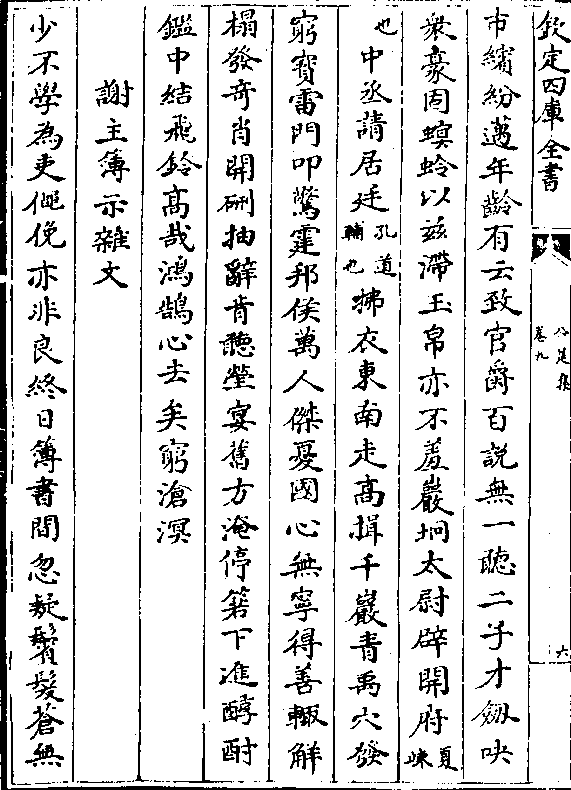 欽定四庫全書
公是集
卷九
六
市繽紛邁年齡有云致官爵百說無一聽二子才劔吷
衆豪固螟蛉以兹滯玉帛亦不羞巖坰太尉辟開府夏竦
也中丞請居廷孔道輔也拂衣東南走高揖千巖青禹穴發
窮寳雷門叩驚霆邦侯萬人傑憂國心無寧得善輙解
榻發奇肖開硎抽辭肯聽瑩宴舊方淹停箬下進醇酎
鑑中結飛鈴高哉鴻鵠心去矣窮滄溟
謝主簿示雜文
少不學為吏僶俛亦非良終日簿書間忽疑鬢髮蒼無